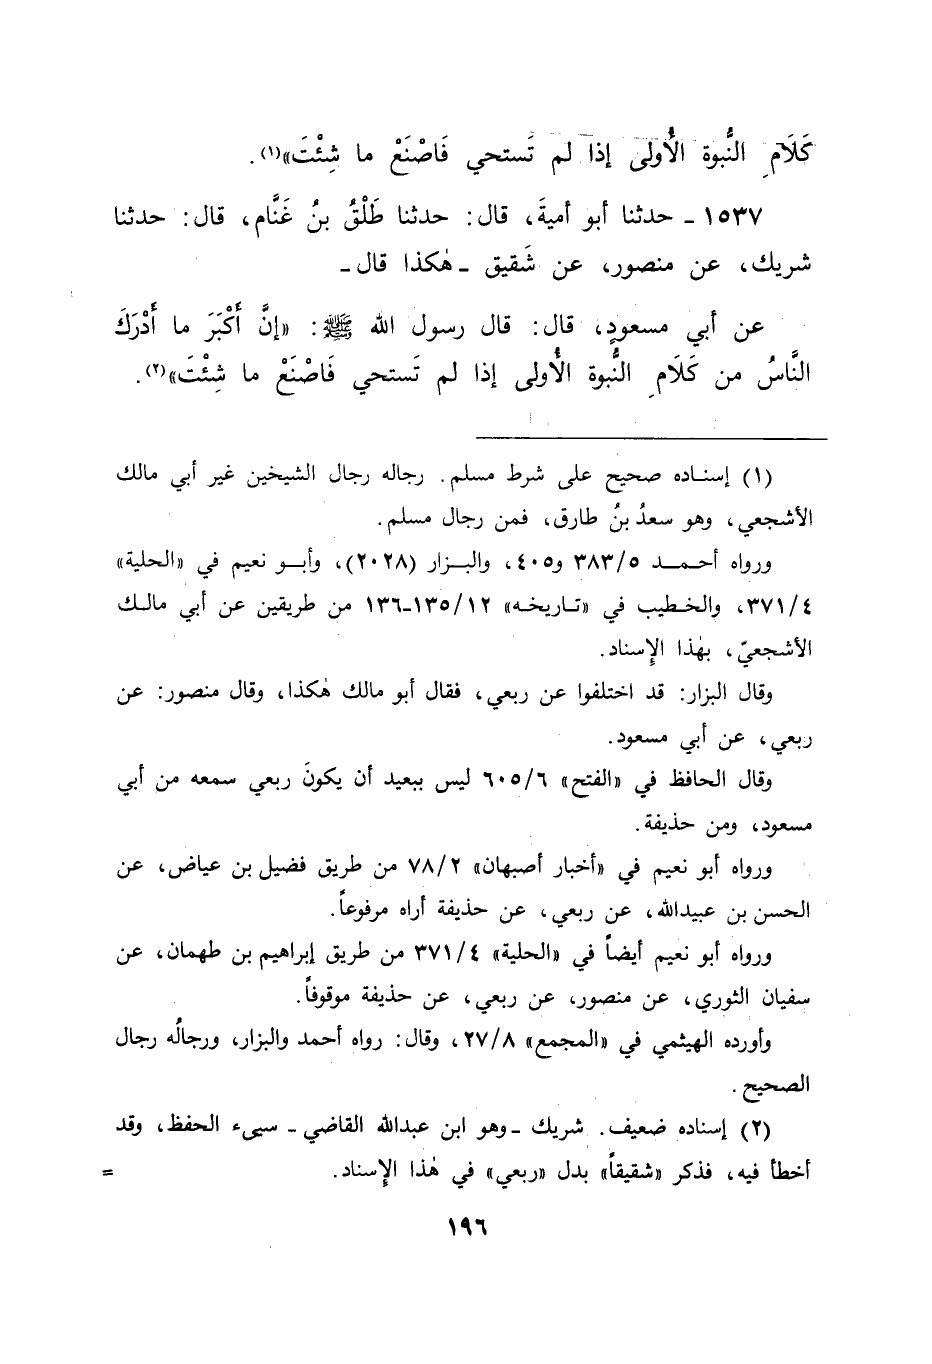 كَلَامِ النُّبوة الأُولى إذا لم تَستحي فَاصْنَعْ ما شِئْتَ»(١).
١٥٣٧ ـ حدثنا أبو أميةَ، قال: حدثنا طَلْقُ بنُ غَنَّام، قال: حدثنا
شريك، عن منصور، عن شَقيق ـ هٰكذا قال ـ
عن أبي مسعودٍ، قال: قال رسول الله ﷺ: «إنَّ أَكْبَرَ ما أَدْرَكَ
النَّاسُ من كَلَامِ النُّبوة الأُولى إذا لم تَستحي فَاصْنَعْ ما شِئْتَ»(٢).
(١) إسناده صحيح على شرط مسلم. رجاله رجال الشيخين غير أبي مالك
الأشجعي، وهو سعدُ بنُ طارق، فمن رجال مسلم.
ورواه أحمد ٣٨٣/٥ و٤٠٥، والبزار (٢٠٢٨)، وأبو نعيم في «الحلية»
٣٧١/٤، والخطيب في «تاريخه» ١٣٥/١٢-١٣٦ من طريقين عن أبي مالك
الأشجعيّ، بهٰذا الإسناد.
وقال البزار: قد اختلفوا عن ربعي، فقال أبو مالك هٰكذا، وقال منصور: عن
ربعي، عن أبي مسعود.
وقال الحافظ في «الفتح» ٦٠٥/٦ ليس ببعيد أن يكونَ ربعي سمعه من أبي
مسعود، ومن حذيفة.
ورواه أبو نعيم في «أخبار أصبهان» ٧٨/٢ من طريق فضيل بن عياض، عن
الحسن بن عبيدالله، عن ربعي، عن حذيفة أراه مرفوعاً.
ورواه أبو نعيم أيضاً في «الحلية» ٣٧١/٤ من طريق إبراهيم بن طهمان، عن
سفيان الثوري، عن منصور، عن ربعي، عن حذيفة موقوفاً.
وأورده الهيثمي في «المجمع» ٢٧/٨، وقال: رواه أحمد والبزار، ورجالُه رجال
الصحيح.
(٢) إسناده ضعيف. شريك ـ وهو ابن عبدالله القاضي ـ سيىء الحفظ، وقد
أخطأ فيه، فذكر «شقيقاً» بدل «ربعي» في هٰذا الإسناد. =
١٩٦